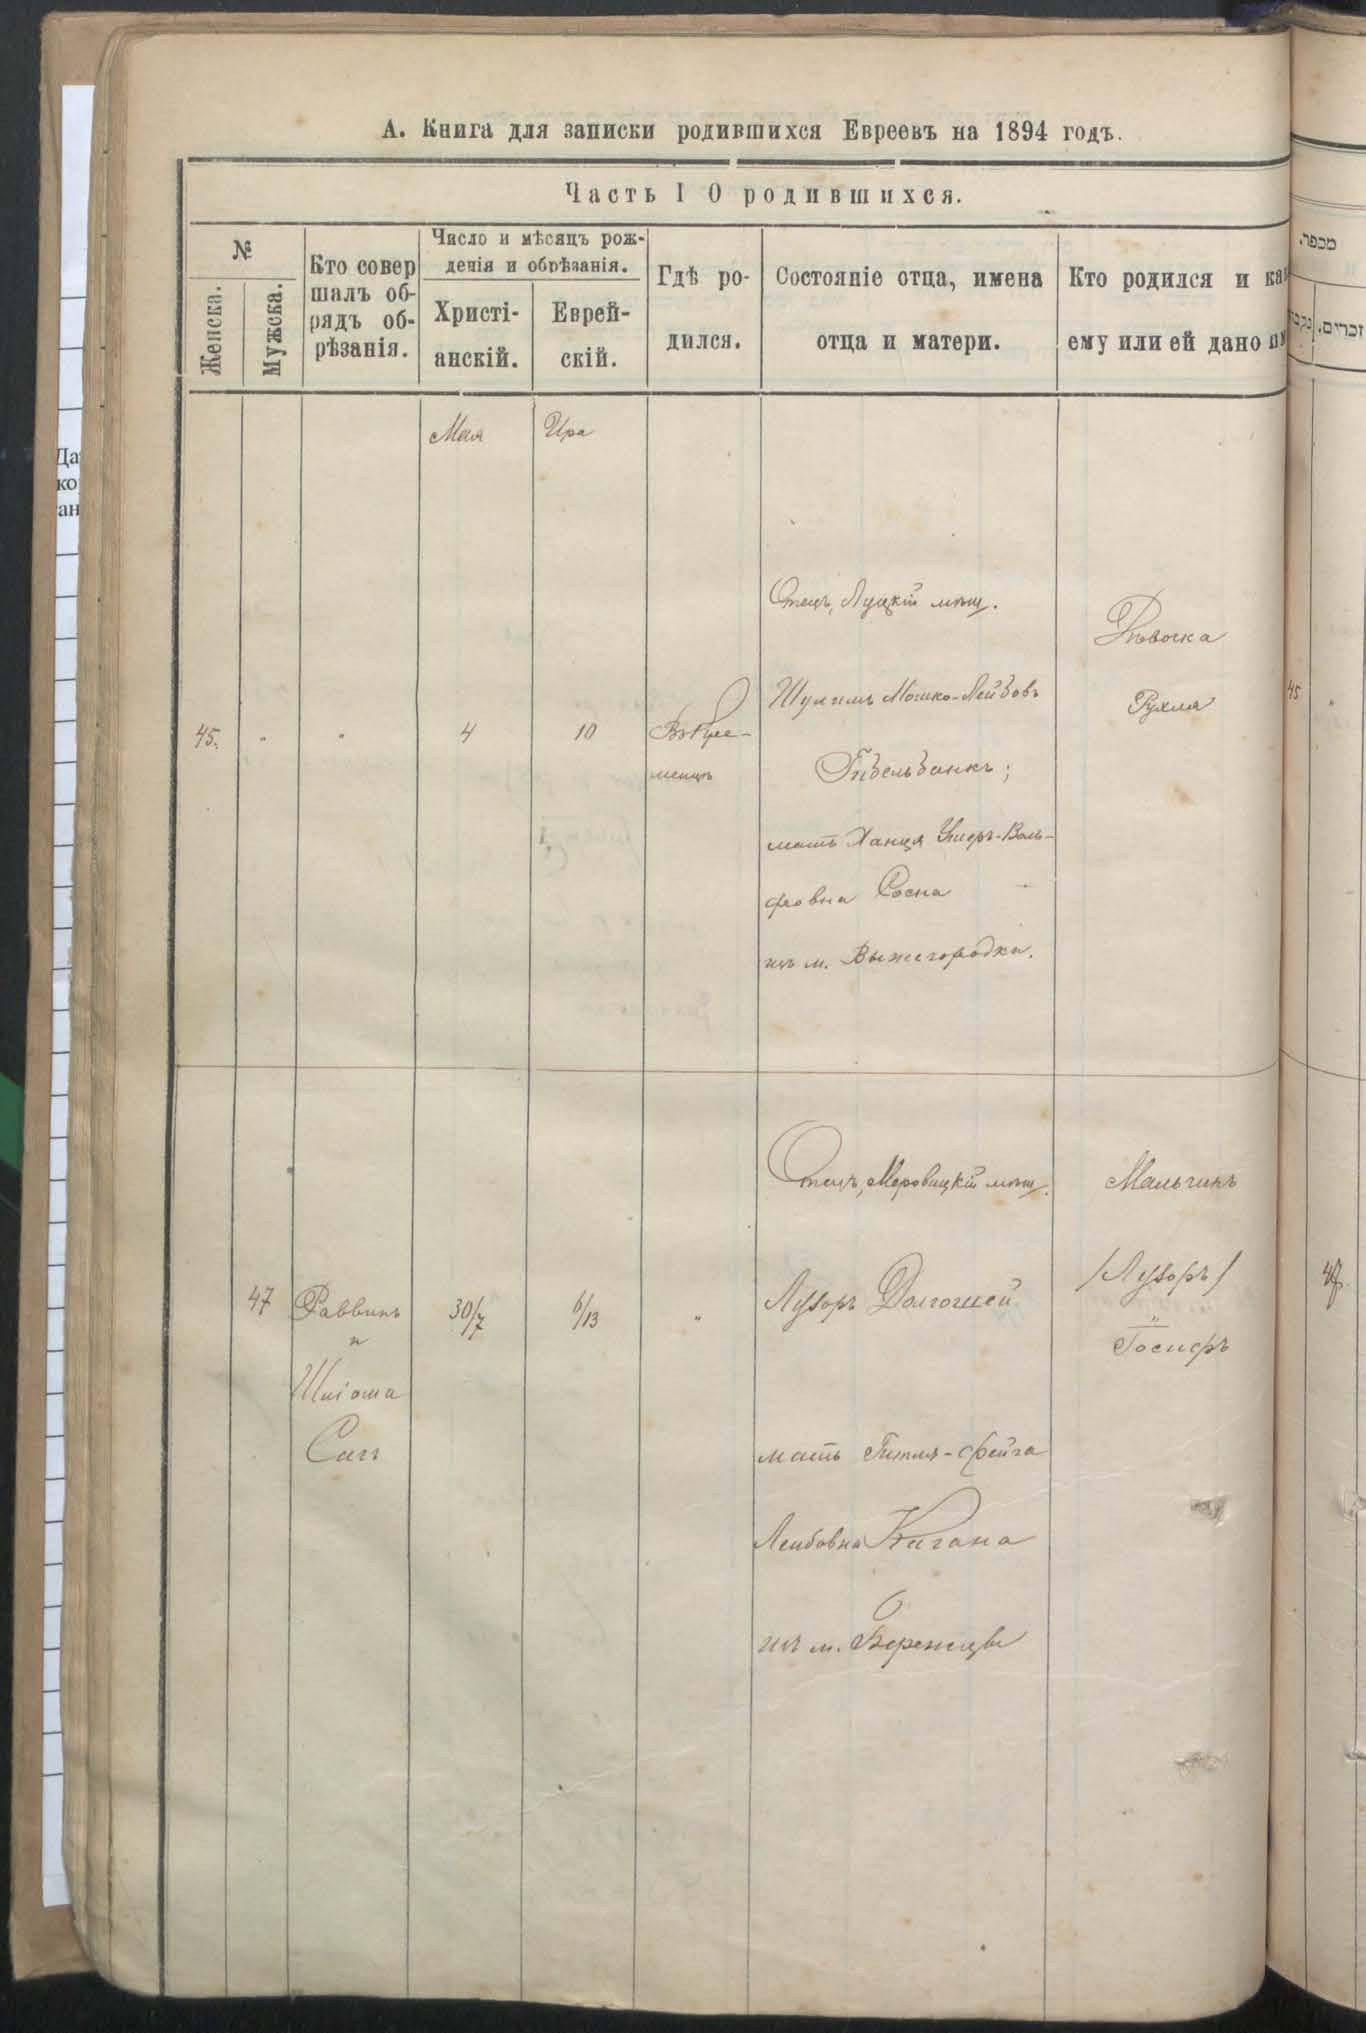 А. Книга для записки родившихся Евреевъ на 1894 годъ.
Часть I О родившихся.
№
Женска.
Мужска.
Кто совер
шалъ об-
рядъ об-
рѣзанія.
Число и мѣсяцъ рож-
денія и обрѣзанія.
Христі-
анскій.
Еврей-
скій.
Гдѣ ро-
дился.
Состояніе отца, имена
отца и матери.
Кто родился и как
ему или ей дано им
מספר.
זכרים.
Да
ко
ан
Мая
Ира
45.
"
"
4
10
Въ Кре-
менцѣ
Отецъ, Луцкій мѣщ.
Шулимъ Мошко-Лейбовъ
мать Ханця Ушеръ-Воль-
фовна Сосна
изъ м. Вышегородка.
Дѣвочка
Рухля
45
"
47
Раввинъ
и
30/7
6/13
"
Отецъ, Меровицкій мѣщ.
Лузоръ Долгошей
мать Гитля-Фейга
Лейбовна Кагана
изъ м. Бережцы
Мальчикъ
/Лузоръ/
"
Госифъ
47